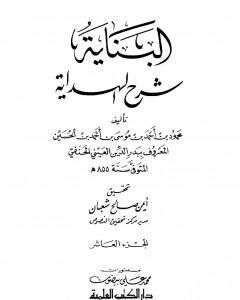 البناية
شرح الهداية
تأليف
محمود بن أحمد بن موسى بن أحمد بن الحسين
المعروف ببدر الدين العيني الحنفي
المتوفى سنة ٨٥٥ هـ
تحقيق
أيمن صالح شعبان
مدير مركز تحقيق النصوص
الجزء العاشر
منشورات
محمد علي بيضون
دار الكتب العلمية